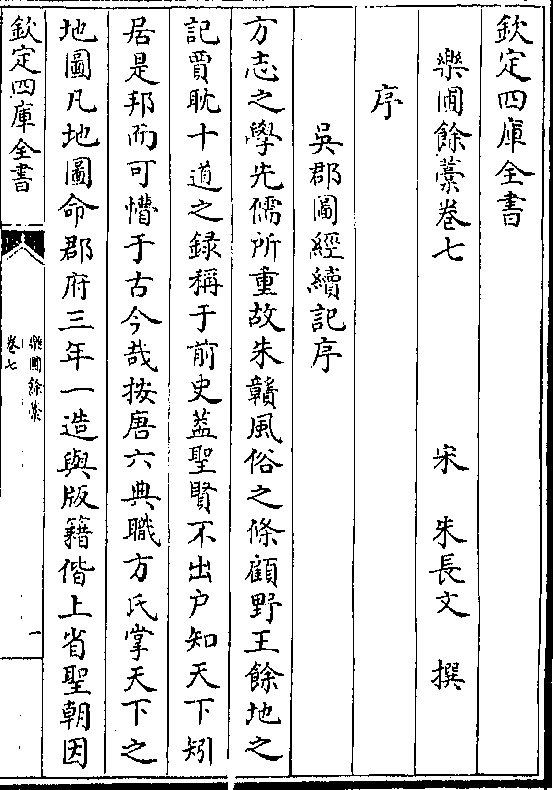 欽定四庫全書
樂圃餘藁卷七
宋　朱長文　撰
序
吳郡圖經續記序
方志之學先儒所重故朱贛風俗之條顧野王餘地之
記賈耽十道之録稱于前史葢聖賢不出户知天下矧
居是邦而可懵于古今哉按唐六典職方氏掌天下之
地圖凡地圖命郡府三年一造與版籍偕上省聖朝因
欽定四庫全書
樂圃餘藁
卷七
一